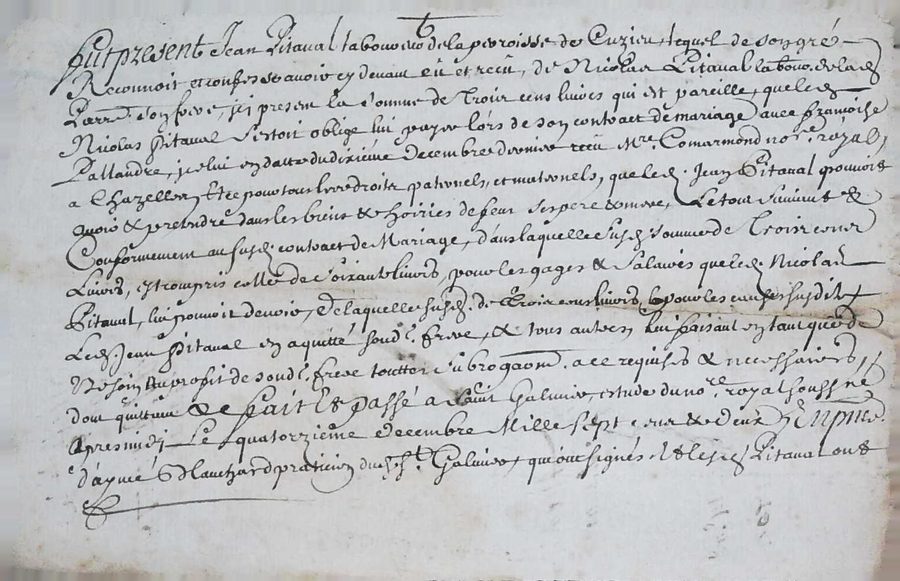 Fut present Jean Pitaval laboureur de la perroisse de Cuzieu, lequel de son gré
Reconnoit et confesse avoir cy devant eü et receü, de Nicolas Pitaval labour. de lad.
Parr. son frere, icy present la somme de Trois cens livres qui est pareille, que led.
Nicolas Pitaval s'estoit obligé lui payer lors de son contract de mariage avec françoise
Pallandre, icelui en datte du dixiéme Decembre dernier receu Mre. Comarmond nore. royal
a Chazelles, Et ce pour tous les droits paternels, et maternels, que led. Jean Pitaval pouvoit
avoir & pretendre dans les biens & hoiries de feus ses pere & mere, Le tout suivant &
Conformement au susd. contract de Mariage, dans laquelle susd. somme de Trois cens
Livres, est compris celle de soixante livres, pour les gages & salaires que led. Nicolas
Pitaval, lui pouvoit devoir, De laquelle susd. de Trois cens livres, & pour les causes susdites
Led. Jean Pitaval en a quitté sond. frere, & tous autres, lui faisant en tant que de
Besoin au profit de sond. frere touttes subrogaons. a ce requises & necessaires,
dont quittance & Fait Et Passé a Saint Galmier, estude du nore. royal soussné
apres midi Le quatorziéme decembre Mille sept cens & deux En pnce.
d'aymé Blanchard praticien dud. St. Galmier, qui ont signés & led. Pitaval ont